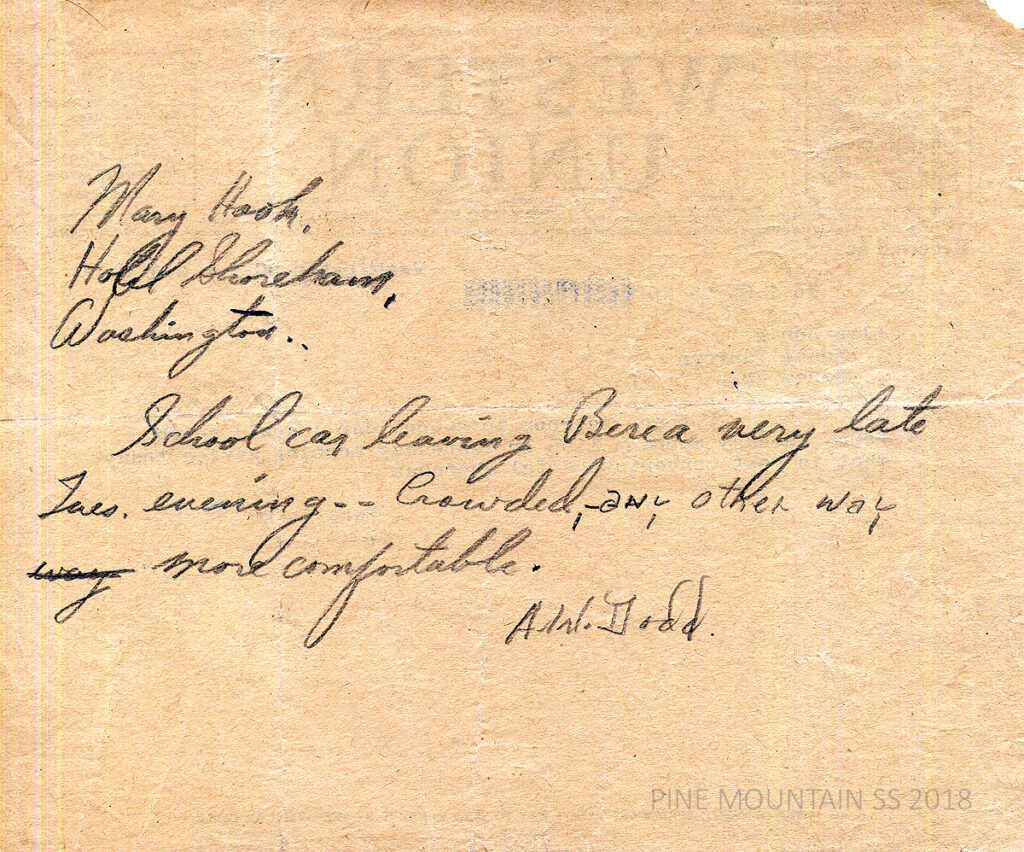 WESTERN
UNION
Mary Hook,
Hotel Shoreham,
Washington..
School car leaving Berea very late
Tues. evening-- Crowded, any other way
way more comfortable.
A.W. Dodd.
PINE MOUNTAIN SS 2018